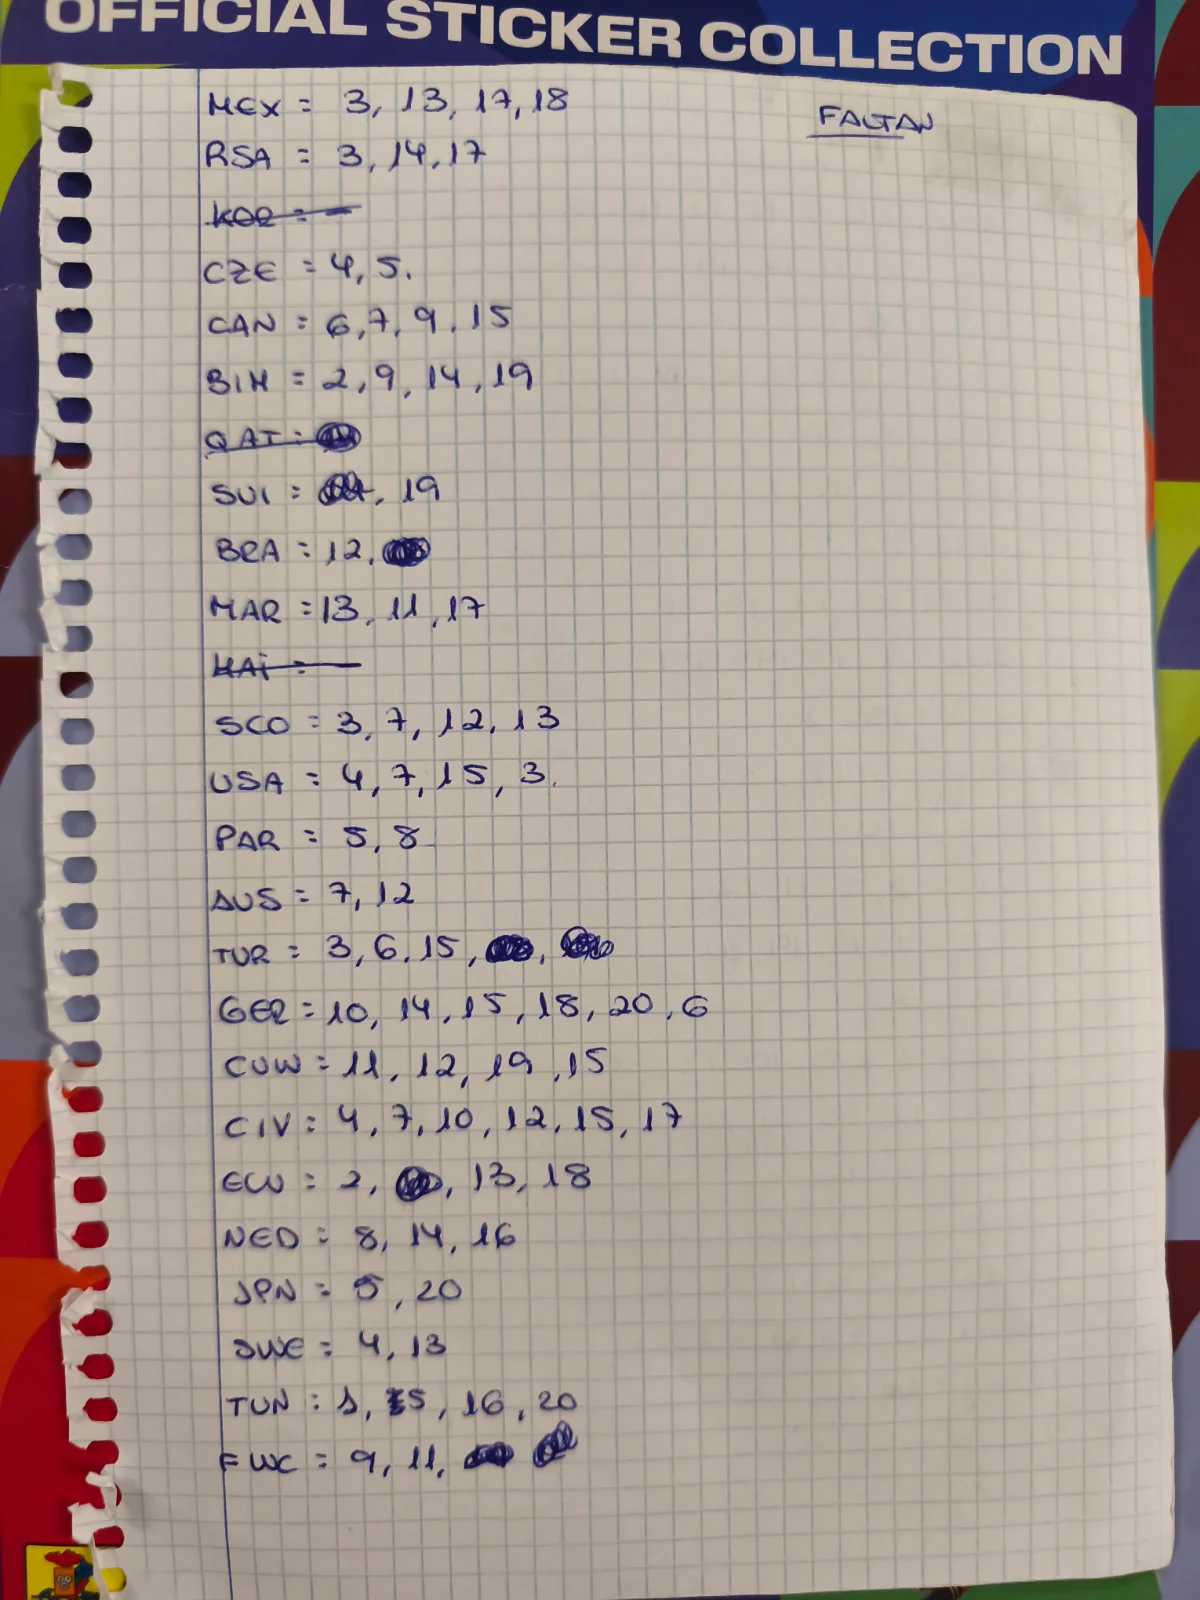 OFFICIAL STICKER COLLECTION
FALTAN
MEX = 3, 13, 17, 18
RSA = 3, 14, 17
KOR = -
CZE = 4, 5.
CAN = 6, 7, 9, 15
BIH = 2, 9, 14, 19
QAT =
SUI = , 19
BRA = 12,
MAR = 13, 11, 17
HAI = -
SCO = 3, 7, 12, 13
USA = 4, 7, 15, 3.
PAR = 5, 8
AUS = 7, 12
TUR = 3, 6, 15, ,
GER = 10, 14, 15, 18, 20, 6
CUW = 11, 12, 19, 15
CIV = 4, 7, 10, 12, 15, 17
ECU = 2, , 13, 18
NED = 8, 14, 16
JPN = 5, 20
SWE = 4, 13
TUN = 1, 5, 16, 20
FWC = 9, 11,